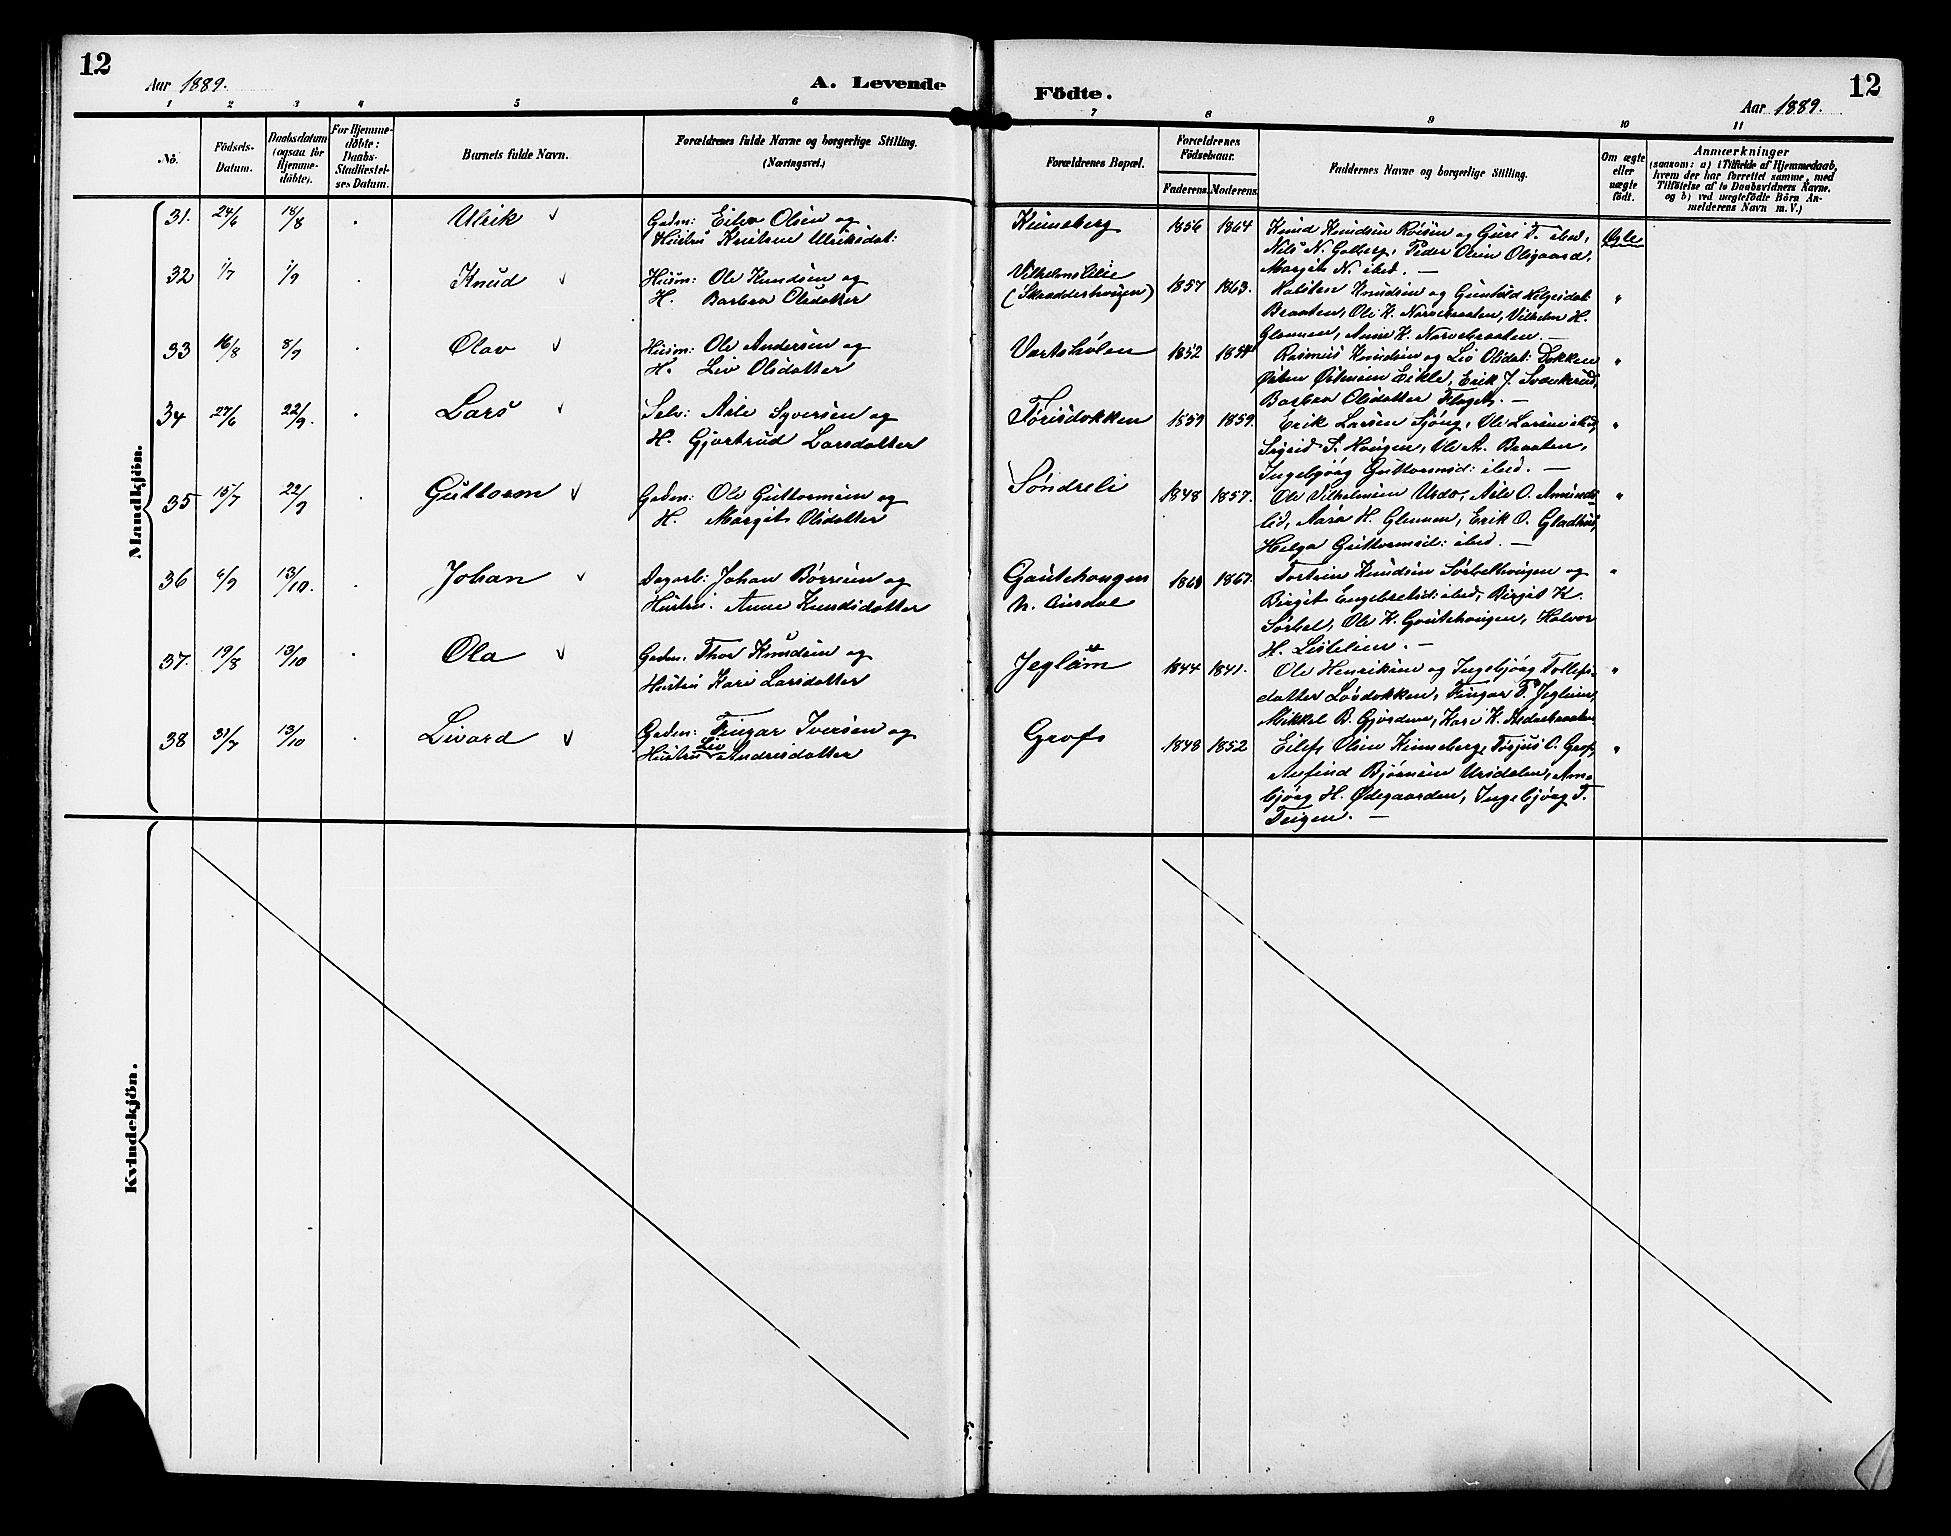 12
Aar 1889.
A. Levende
Födte.
12
Aar 1889.
1 2 3 4 5 6 7 8 9 10 11
No.
Födsels-
Datum.
Daabsdatum
(ogsaa för
Hjemme-
döbte).
For Hjemme-
döbte:
Daabs-
Stadfæstel-
ses Datum.
Barnets fulde Navn.
Forældrenes fulde Navne og borgerlige Stilling.
(Næringsvei.)
Forældrenes Bopæl.
Forældrenes
Födselsaar.
Faderens. Moderens.
Faddernes Navne og borgerlige Stilling.
Om ægte
eller
uægte
födt.
Anmærkninger
(saasom: a) i Tilfælde af Hjemmedaab,
hvem der har forrettet samme, med
Tilföielse af to Daabsvidners Navne,
og b) ved uægtefödte Börn An-
melderens Navn m. V.)
Mandkjön.
31. 24/6 18/8 Ulrik Gadm: Eilev Olsen og
Hustru Ulriksdat:
Kinneberg 1856 1864 Knud Knudsen og Guri T. ibid,
Nils N. Golberg, Peder Olsen Olsgaard,
Margit N. ibid. —
Ægte
32 1/7 1/9 Knud Husm: Ole Knudsen og
H. Barbra Olsdatter
Vilhelmslilie
(Skradderhougen) 1857 1863. Knudsen og Gunhild Helgesdat:
Braaten, Ole K. Narvebraaten, Vilhelm H.
Glennen, Anne K. Narvebraaten. —
"
33 16/8 8/9 Olav Husm: Ole Andersen og
H. Liv Olsdatter
1852 1854 Rasmus Knudsen og Liv Olsdat: Dokken
Østen Østensen Eikle, Erik J. Svenkerud,
Barbra Olsdatter Flaget. —
"
34 27/6 22/9. Lars Selv: Asle Syversen og
H. Gjertrud Larsdatter
Torisdokken 1859 1859. Erik Larsen Sjong, Ole Larsen ibid,
Sigrid S. Hougen, Ole A. Braaten,
Ingebjørg Guttormsd: ibid. —
"
35 15/7 22/9 Guttorm Gadm: Ole Guttormsen og
H. Margit Olsdatter
Søndreli 1848 1857. Ole Vilhelmsen Ursdo, Asle O. Amunds-
lid, H. Glennen, Erik O. Gladhus,
Helga Guttormsd: ibid. —
"
36 6/9 13/10. Johan Dagarb: Johan Børresen og
Hustru: Anne Knudsdatter
Gautehougen
N. Aurdal 1867. Torstein Knudsen Sørbelhougen og
Birgit Engebretsd: ibid, Birgit K.
Sørbel, Ole K. Gautehougen, Halvor
H. Lislelien. —
"
37. 19/8 13/10 Ola Gadm: Thor Knudsen og
Hustru Kari Larsdatter
Jeglum 1844 1841. Ole Henriksen og Ingebjørg Tollefs-
datter Løvdokken, Fingar T. Jeglum,
Mikkel B. Gjordene, Kari K.
"
38 31/7 13/10 Livard Gadm: Fingar Iversen og
Hustru Liv Andrisdatter
Grøf 1848 1852 Eilef Olsen Kinneberg, Torjus O. Grøf,
Anfind Bjørnsen Ursdalen, Am-
bjørg H. Ødegaarden, Ingebjørg T.
Teigen. —
"
Kvindekjön.